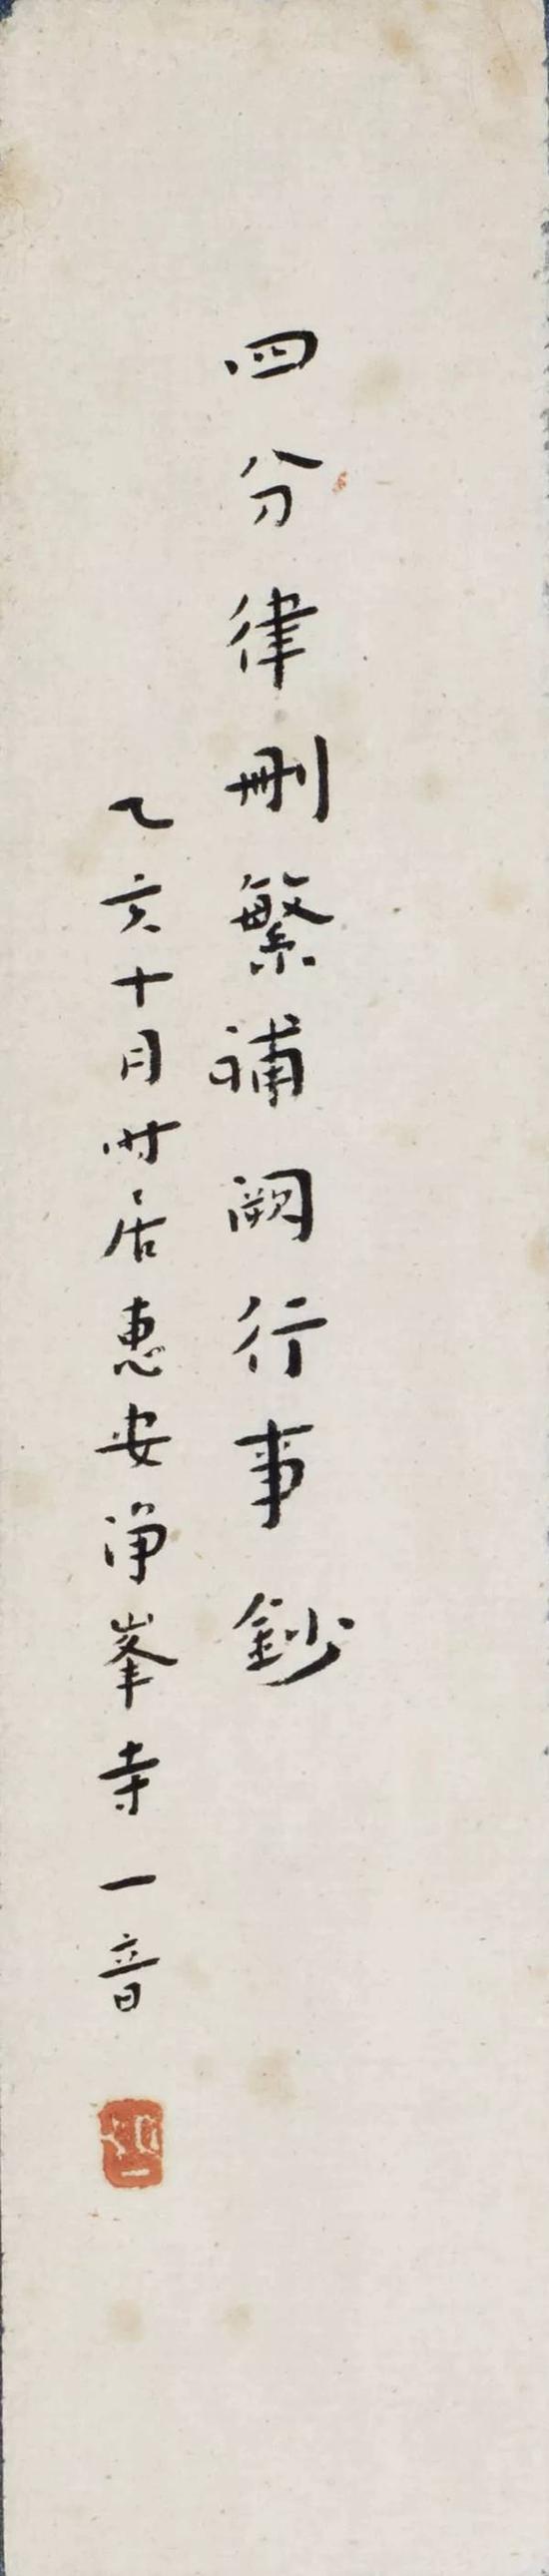 四分律刪繁補闕行事鈔
乙亥十月時居惠安淨峯寺一音